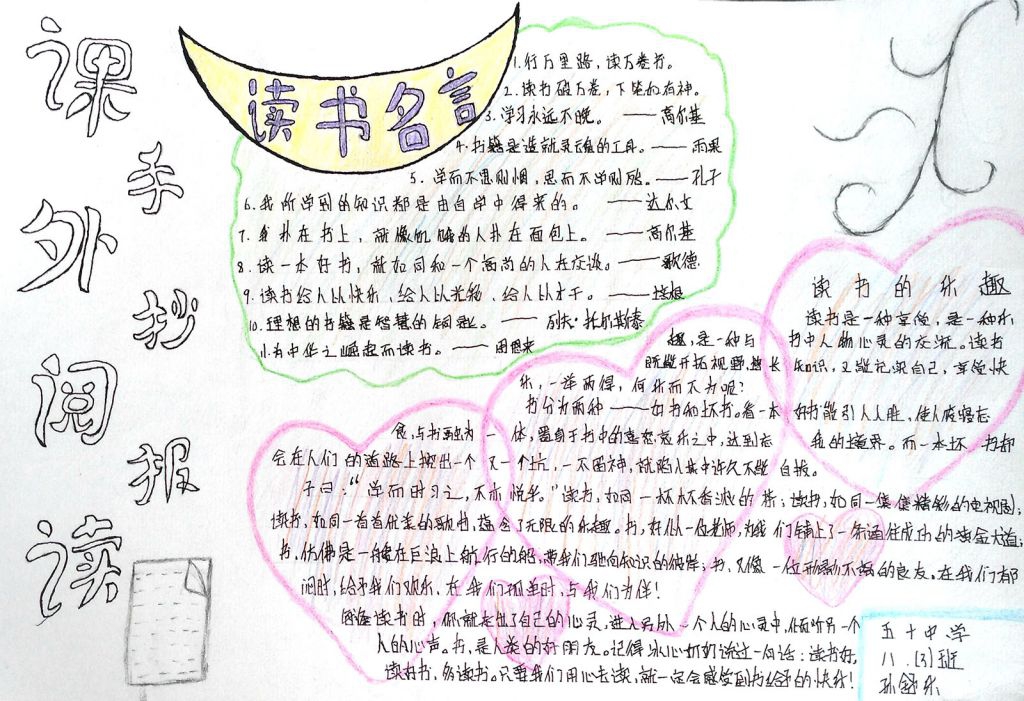 课外阅读
手抄报
读书名言
1.行万里路,读万卷书。
2.读书破万卷,下笔如有神。
3.学习永远不晚。——高尔基
4.书籍是造就灵魂的工具。——雨果
5.学而不思则惘,思而不学则殆。——孔子
6.我所学到的知识都是由自学中得来的。——达尔文
7.我扑在书上,就像饥饿的人扑在面包上。——高尔基
8.读一本好书,就如同和一个高尚的人在交谈。——歌德
9.读书给人以快乐、给人以光彩、给人以才干。——培根
10.理想的书籍是智慧的钥匙。——列夫·托尔斯泰
11.为中华之崛起而读书。——周恩来
读书的乐趣
读书是一种享受,是一种乐
趣,是一种与书中人物心灵的交流。读书
既能开拓视野,增长知识,又能充实自己,享受快
乐,一举两得,何乐而不为呢?
书分为两种——好书和坏书。看一本好书能引人入胜,使人废寝忘
食,与书融为一体,置身于书中的喜怒哀乐之中,达到忘我的境界。而一本坏书却
会在人们的道路上挖出一个又一个坑,一不留神,就陷入其中许久不能自拔。
子曰:“学而时习之,不亦悦乎。”读书,如同一杯杯香浓的茶;读书,如同一集集精彩的电视剧;
读书,如同一首首优美的歌曲,蕴含了无限的乐趣。书,好似一位老师,为我们铺上了一条通往成功的漆金大道;
书,仿佛是一艘在巨浪上航行的船,带我们驶向知识的彼岸;书,又像一位形影不离的良友,在我们郁
闷时,给予我们欢乐,在我们孤单时,与我们为伴!
每逢读书时,你就走出了自己的心灵,进入另外一个人的心灵中,倾听另一个
人的心声。书,是人类的好朋友。记得冰心奶奶说过一句话:读书好,
读好书,多读书。只要我们用心去读,就一定会感受到书给予的快乐!
五十中学
八.(3)班
孙舒乐